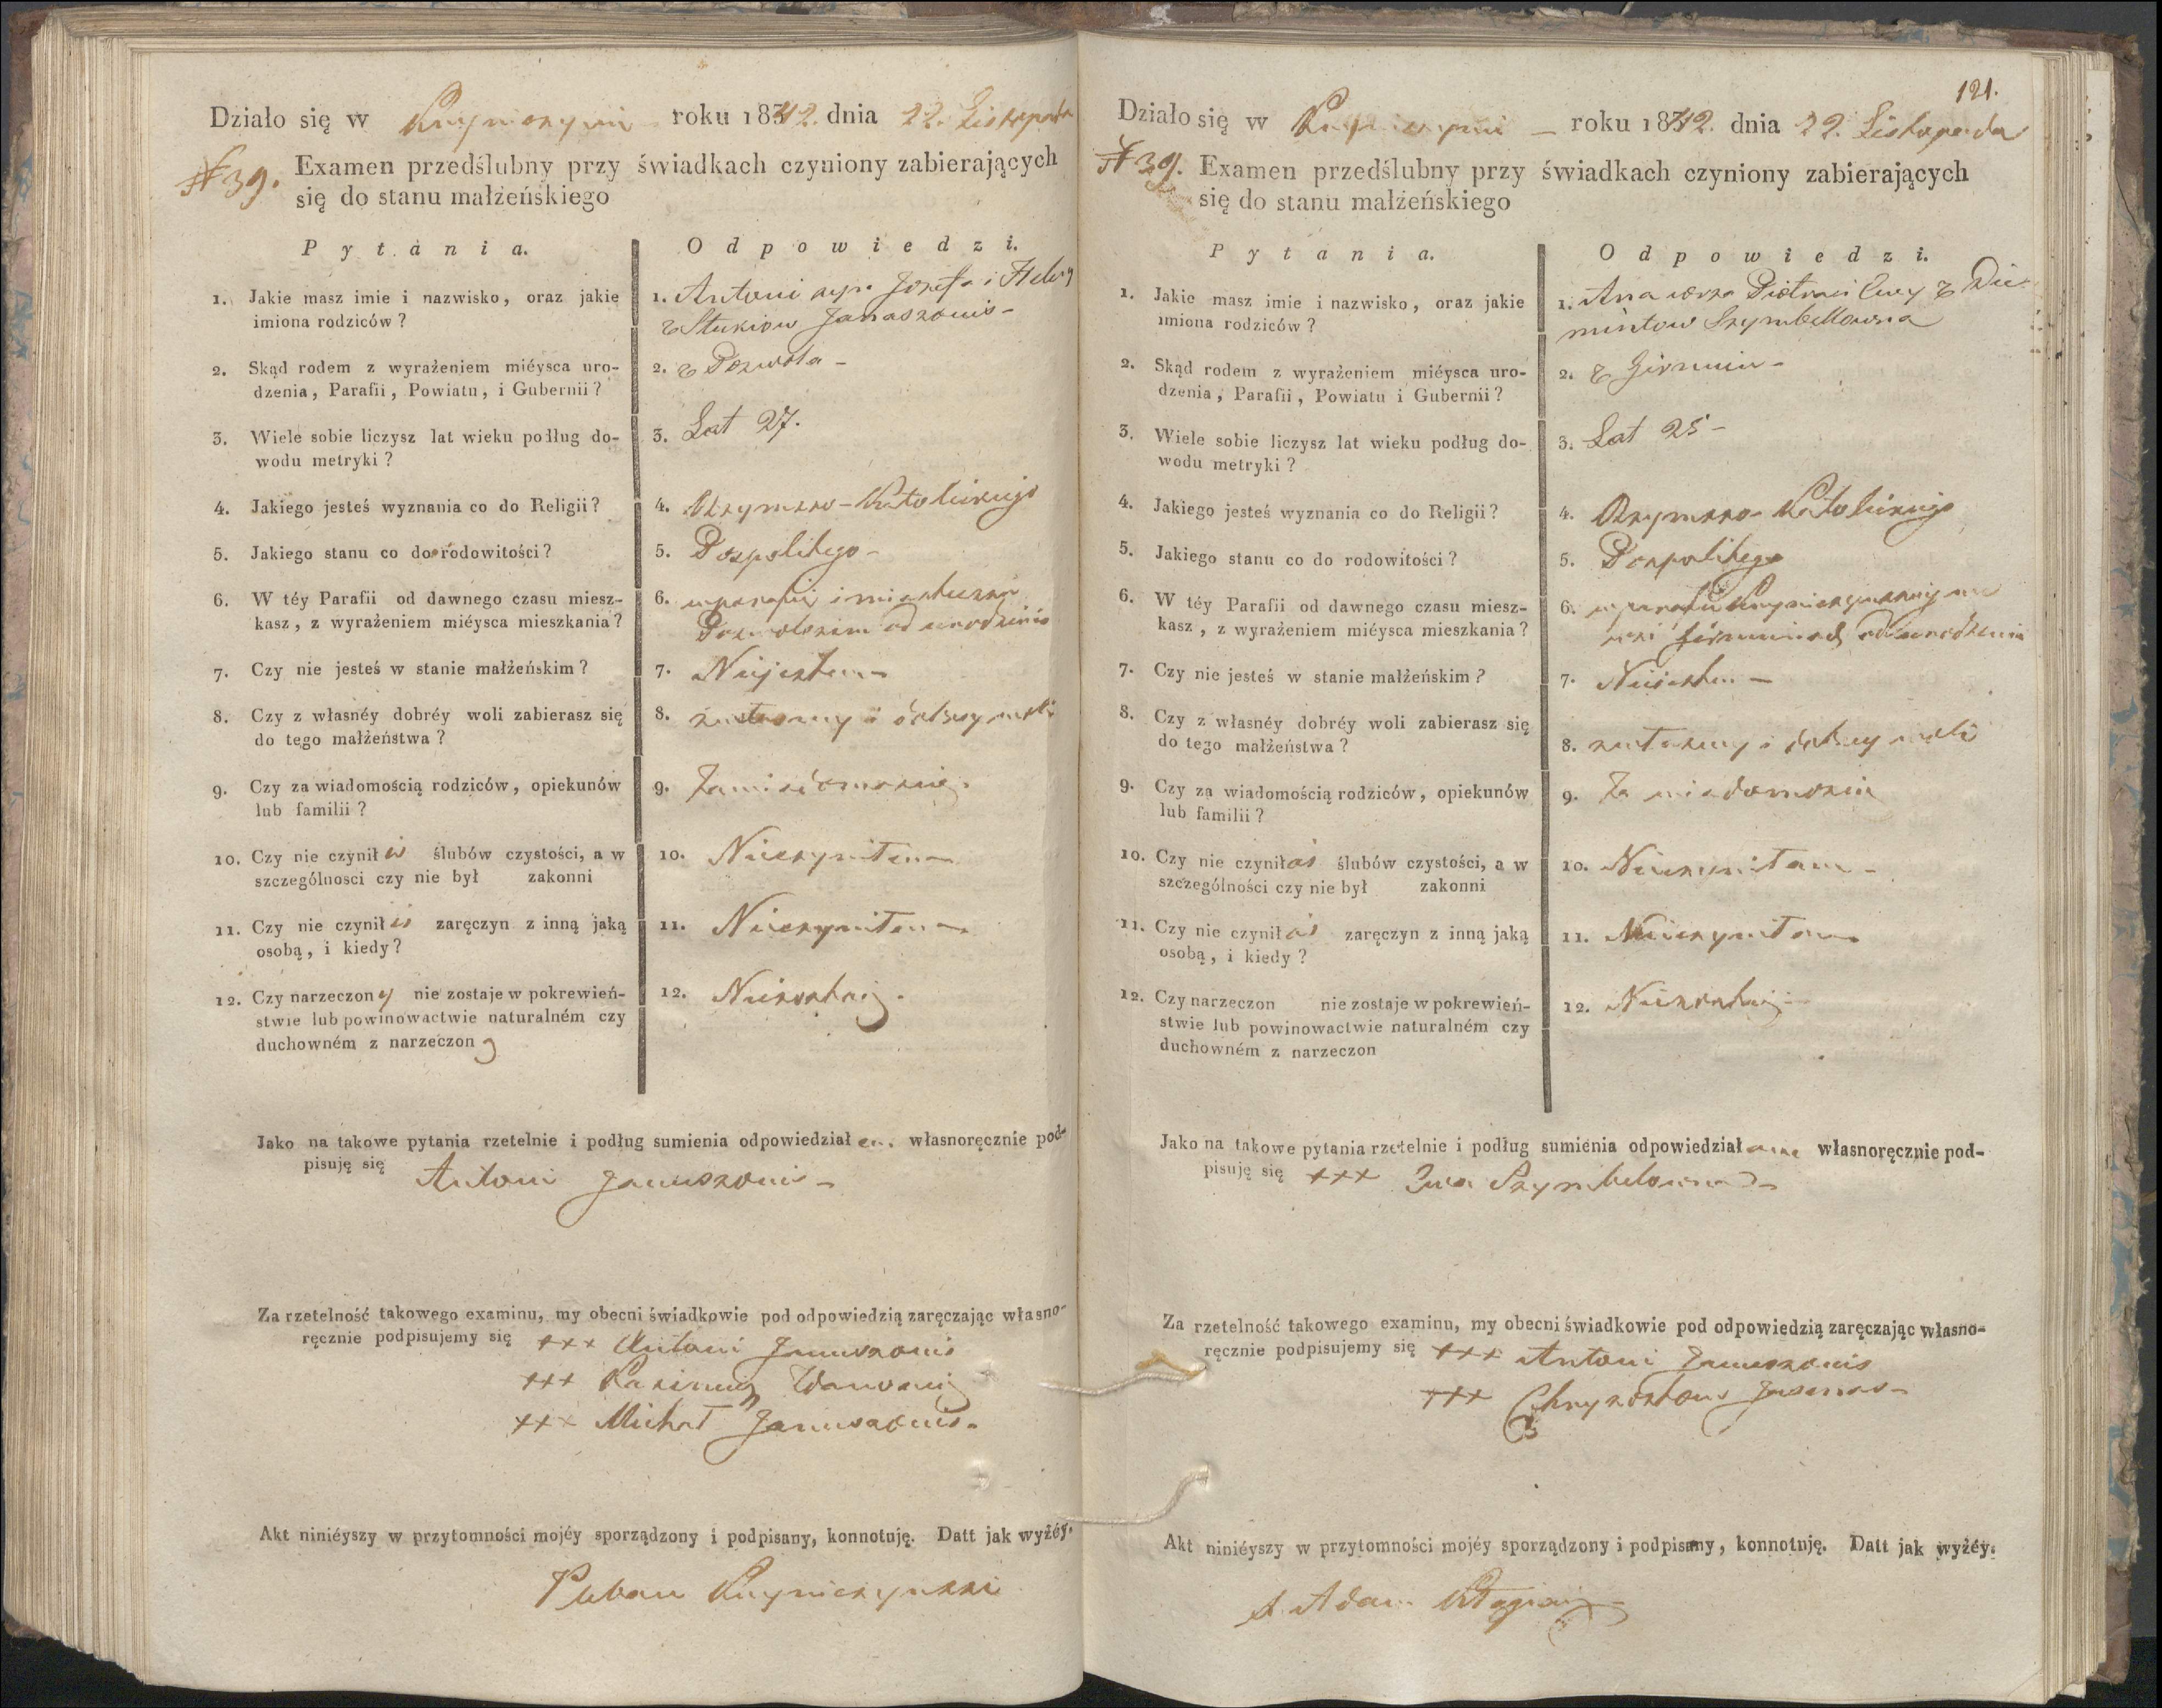 Działo się w roku 1842. dnia 22. Listopada
№ 39. Examen przedślubny przy świadkach czyniony zabierających
się do stanu małżeńskiego
Pytania. Odpowiedzi.
1. Jakie masz imie i nazwisko, oraz jakie
imiona rodziców?
1. Antoni syn Jozefa i
Januszonis -
2. Skąd rodem z wyrażeniem miéysca uro-
dzenia, Parafii, Powiatu, i Gubernii?
2. z Pozwola -
3. Wiele sobie liczysz lat wieku podług do-
wodu metryki?
3. Lat 27.
4. Jakiego jesteś wyznania co do Religii?
4. Rzymsko-Katolickiego
5. Jakiego stanu co do rodowitości?
5. Pospolitego -
6. W téy Parafii od dawnego czasu miesz-
kasz, z wyrażeniem miéysca mieszkania?
6. w parafii i miasteczku
od urodzenia
7. Czy nie jesteś w stanie małżeńskim?
7. Niejestem -
8. Czy z własnéy dobréy woli zabierasz się
do tego małżeństwa?
8. z własney i dobrey woli
9. Czy za wiadomością rodziców, opiekunów
lub familii?
9. Za wiadomością.
10. Czy nie czynił eś ślubów czystości, a w
szczególnosci czy nie był zakonni
10. Nieczyniłem -
11. Czy nie czynił eś zaręczyn z inną jaką
osobą, i kiedy?
11. Nieczyniłem -
12. Czy narzeczony nie zostaje w pokrewień-
stwie lub powinowactwie naturalném czy
duchowném z narzeczoną
12. Niezostaię.
Jako na takowe pytania rzetelnie i podług sumienia odpowiedziałem. własnoręcznie pod-
pisuję się Antoni Januszonis -
Za rzetelność takowego examinu, my obecni świadkowie pod odpowiedzią zaręczając własno-
ręcznie podpisujemy się +++ Antoni Januszonis
+++ Kazimierz
+++ Michał Januszonis.
Akt niniéyszy w przytomności mojéy sporządzony i podpisany, konnotuję. Datt jak wyżéy.
Pleban
121.
Działo się w roku 1842. dnia 22. Listopada
№ 39. Examen przedślubny przy świadkach czyniony zabierających
się do stanu małżeńskiego
Pytania. Odpowiedzi.
1. Jakie masz imie i nazwisko, oraz jakie
imiona rodziców?
1. córka Piotra i Ewy z
Szymbellowna
2. Skąd rodem z wyrażeniem miéysca uro-
dzenia, Parafii, Powiatu i Gubernii?
2. z Girmuin -
3. Wiele sobie liczysz lat wieku podług do-
wodu metryki?
3. Lat 25 -
4. Jakiego jesteś wyznania co do Religii?
4. Rzymsko-Katolickiego
5. Jakiego stanu co do rodowitości?
5. Pospolitego
6. W téy Parafii od dawnego czasu miesz-
kasz, z wyrażeniem miéysca mieszkania?
6. w parafii we
wsi Girmuiniach od urodzenia
7. Czy nie jesteś w stanie małżeńskim?
7. Niejestem -
8. Czy z własnéy dobréy woli zabierasz się
do tego małżeństwa?
8. z własney i dobrey woli
9. Czy za wiadomością rodziców, opiekunów
lub familii?
9. Za wiadomością
10. Czy nie czyniłaś ślubów czystości, a w
szczególności czy nie był zakonni
10. Nieczyniłam -
11. Czy nie czyniłaś zaręczyn z inną jaką
osobą, i kiedy?
11. Nieczyniłam
12. Czy narzeczon nie zostaje w pokrewień-
stwie lub powinowactwie naturalném czy
duchowném z narzeczon
12. Niezostaię -
Jako na takowe pytania rzetelnie i podług sumienia odpowiedziałam własnoręcznie pod-
pisuję się +++ Ewa Szymbelowna -
Za rzetelność takowego examinu, my obecni świadkowie pod odpowiedzią zaręczając własno-
ręcznie podpisujemy się +++ Antoni Januszonis
+++ Chryzostom
Akt niniéyszy w przytomności mojéy sporządzony i podpisany, konnotuję. Datt jak wyżéy.
X. Adam